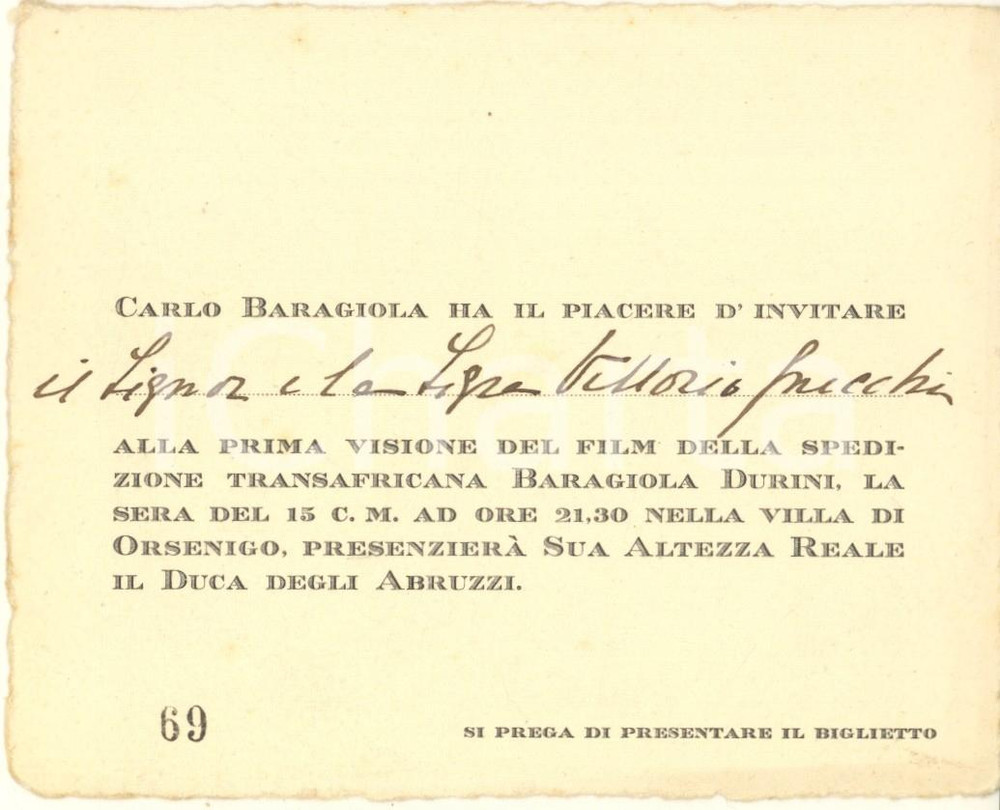 CARLO BARAGIOLA HA IL PIACERE D' INVITARE
il Signor e la Sigra Vittorio Gnecchi
ALLA PRIMA VISIONE DEL FILM DELLA SPEDI-
ZIONE TRANSAFRICANA BARAGIOLA DURINI, LA
SERA DEL 15 C. M. AD ORE 21,30 NELLA VILLA DI
ORSENIGO, PRESENZIERÀ SUA ALTEZZA REALE
IL DUCA DEGLI ABRUZZI.
69
SI PREGA DI PRESENTARE IL BIGLIETTO